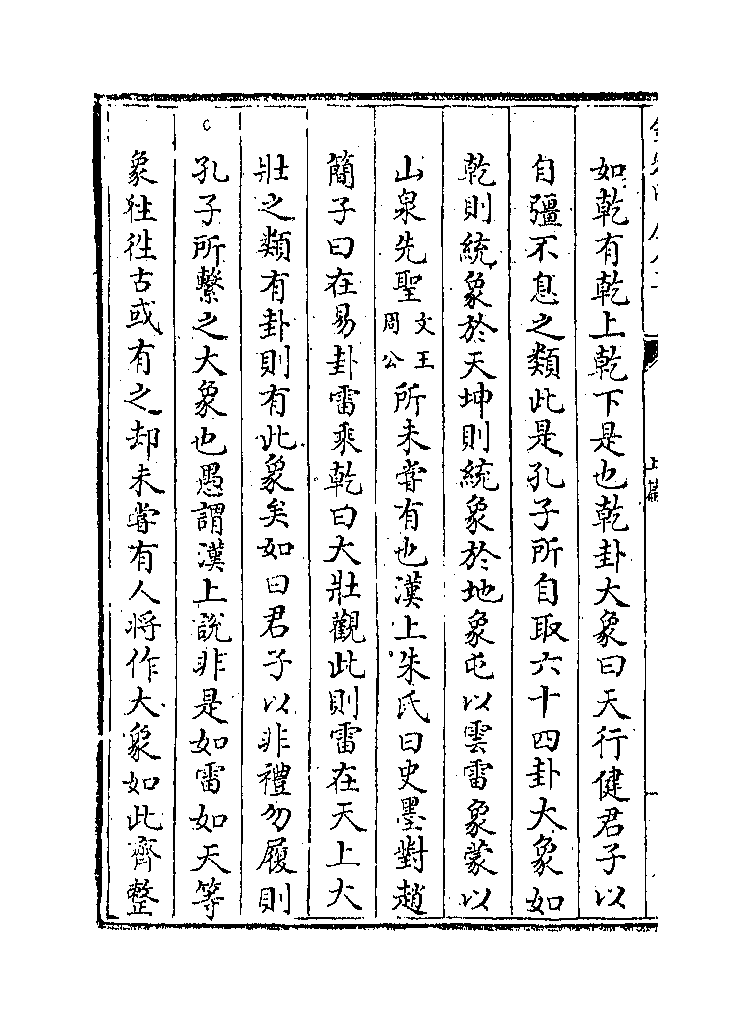 如乾有乾上乾下是也乾卦大象曰天行健君子以
自彊不息之類此是孔子所自取六十四卦大象如
乾則統象於天坤則統象於地象屯以雲雷象蒙以
山泉先聖文王周公所未甞有也漢上朱氏曰史墨對趙
簡子曰在易卦雷乘乾曰大壯觀此則雷在天上大
壯之類有卦則有此象矣如曰君子以非禮勿履則
孔子所繫之大象也愚謂漢上說非是如雷如天等
象往往古或有之却未甞有人將作大象如此齊整